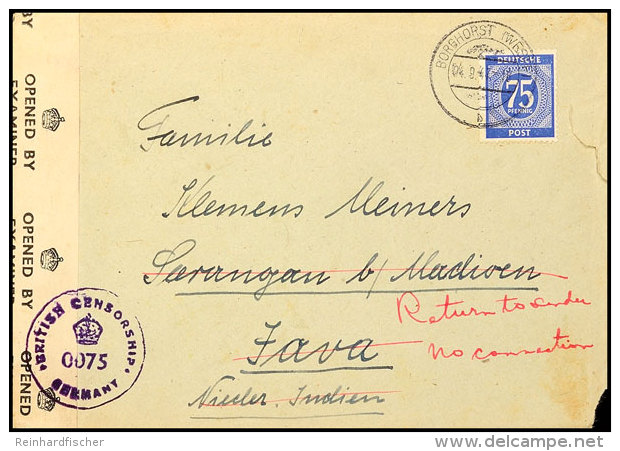 BY
OPENED BY
EXAMINER
OPENED BY
EXAMINER
OPENED
BORGHORST (WESTF
04.9.4
b
DEUTSCHE
75
PFENNIG
POST
Familie
Klemens Meiners
Sarangan b/ Madioen
Return to sender
Java
no connection
Nieder. Indien
BRITISH CENSORSHIP
0075
GERMANY
Reinhardfischer
delcampe.net